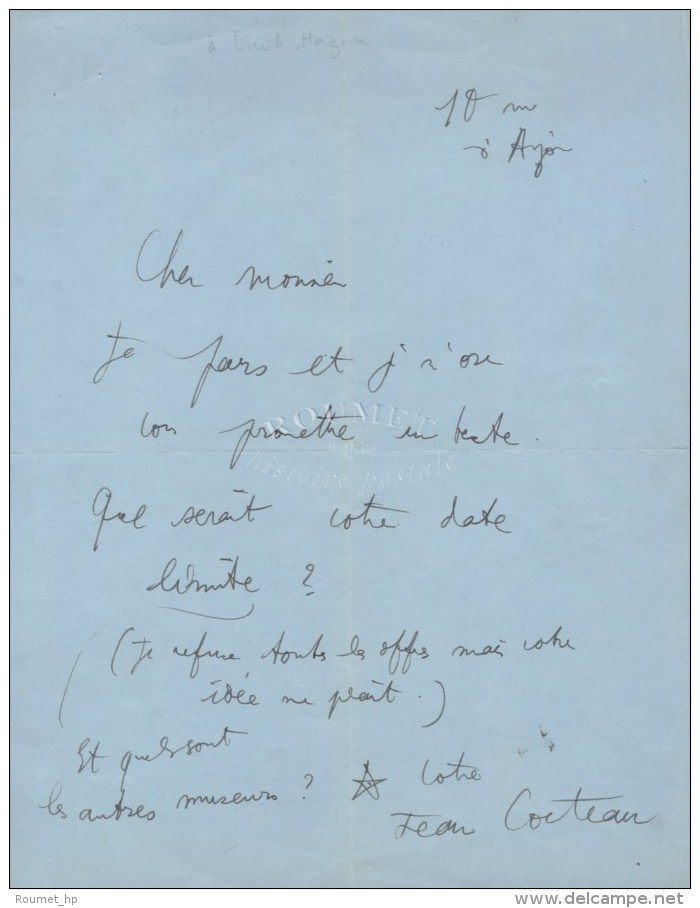 à Emile Hazan
10 rue
Cher monsieur
Je pars et j'n'ose
vous promettre un texte.
Quel serait votre date
limite ?
(Je refuse toutes les offres mais votre
idée me plaît.)
Et quels sont
les autres museurs ? votre
Jean Cocteau
ROUMET
histoire postale
Roumet_hp
www.delcampe.net